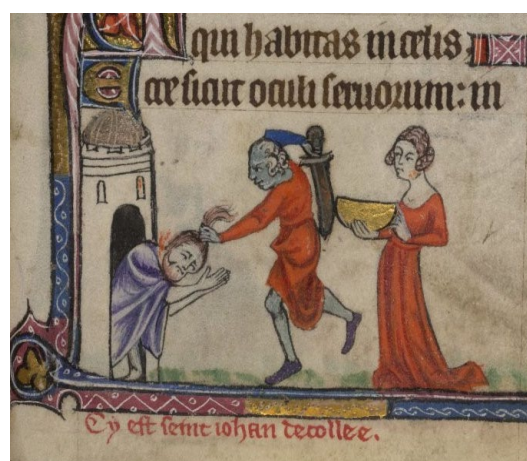 qui habitas in celis
Ecce sicut oculi seruorum: in
Cy est seint iohan decollee.